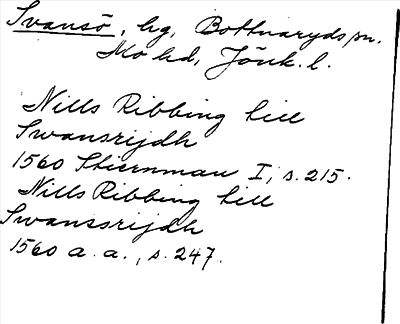 Svansö, hg, Bottnaryds sn.
Mo hd, Jönk. l.
Nills Ribbing till
Swansrijdh
1560 Stiernman I, s. 215.
Nills Ribbing till
Swanssrijdh
1560 a. a., s. 247.